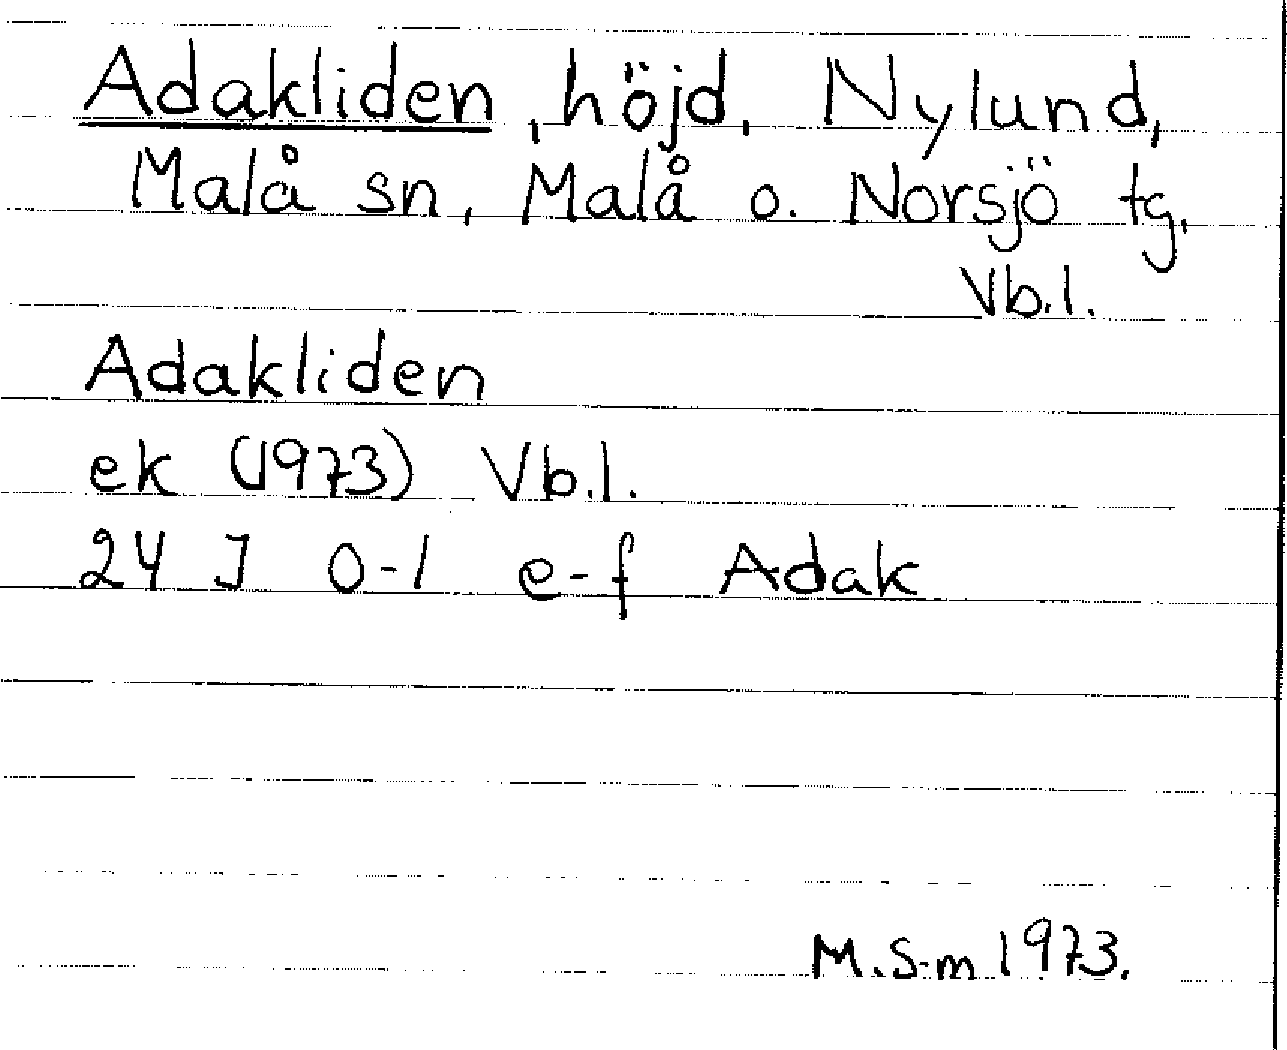 Adakliden, höjd, Nylund,
Malå sn, Malå o. Norsjö tg,
Vb.l.
Adakliden
ek (1973) Vb.l.
24 J 0-1 e-f Adak
M.S-m 1973.